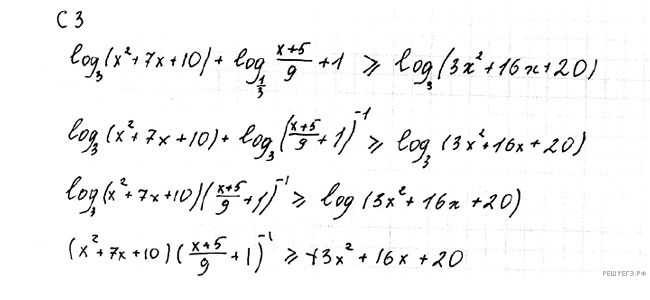 С 3
log₃(x²+7x+10) + log_{1/3} (x+5)/9 + 1 ⩾ log₃(3x²+16x+20)
log₃(x²+7x+10) + log₃((x+5)/9 + 1)⁻¹ ⩾ log₃(3x²+16x+20)
log₃(x²+7x+10)((x+5)/9 + 1)⁻¹ ⩾ log₃(3x²+16x+20)
(x²+7x+10)((x+5)/9 + 1)⁻¹ ⩾ 3x²+16x+20
РЕШУЕГЭ.РФ